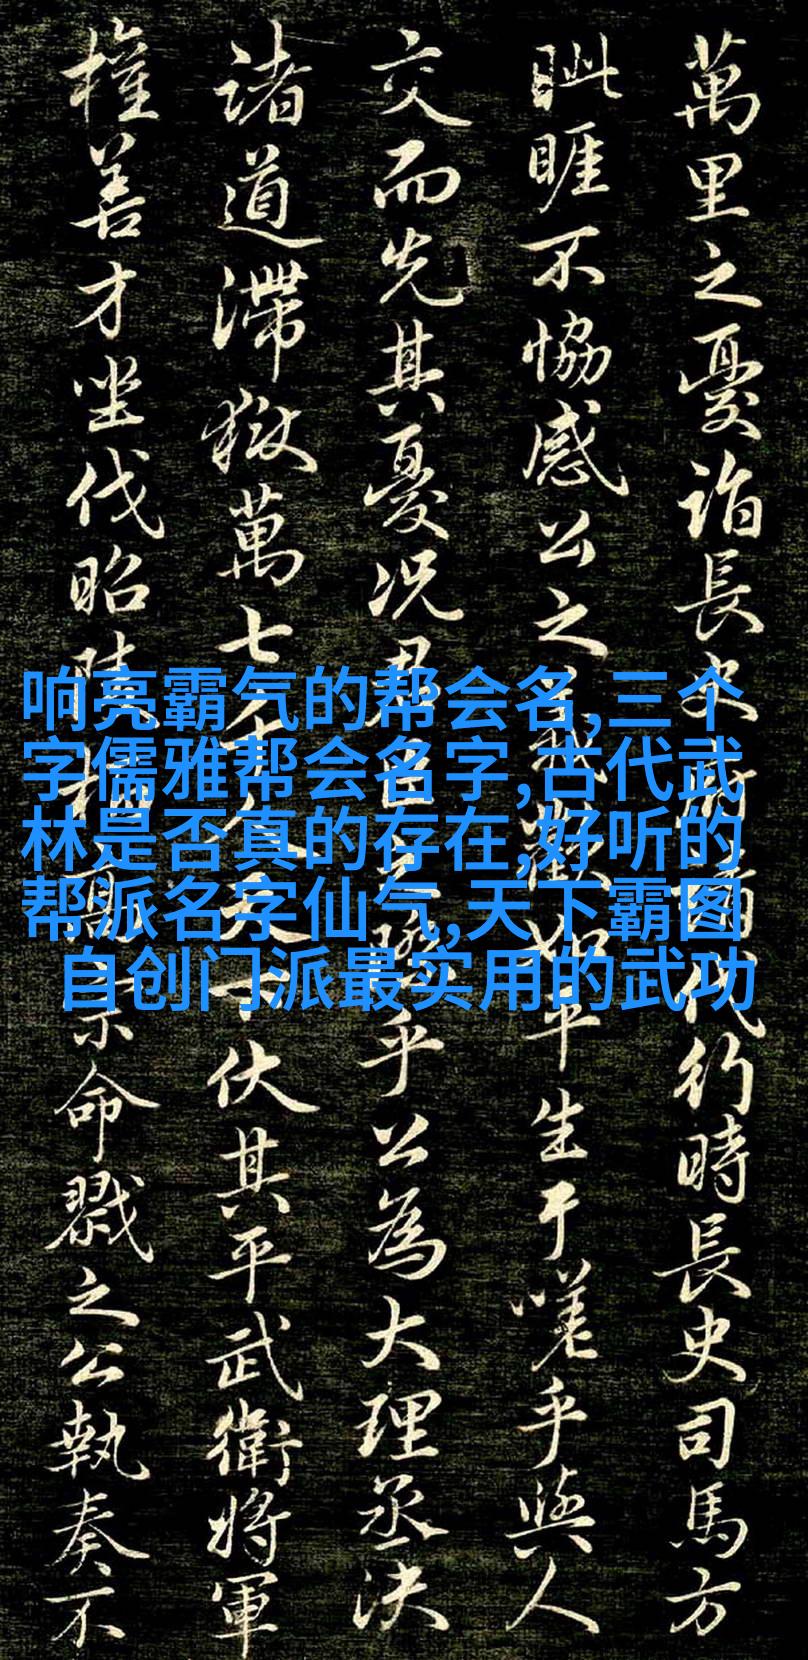 萬里之憂詣長史府請代行時長史司馬方
眦睚不協感公之義歡如平生于嗟乎與人
交而先其憂況君臣之際乎公為大理丞決
諸道滯獄萬七千人天下伏其平武衛將軍
權善才坐伐昭陵栢高宗命戮之公執奏不
响亮霸气的帮会名,三个
字儒雅帮会名字,古代武
林是否真的存在,好听的
帮派名字仙气,天下霸图
自创门派最实用的武功